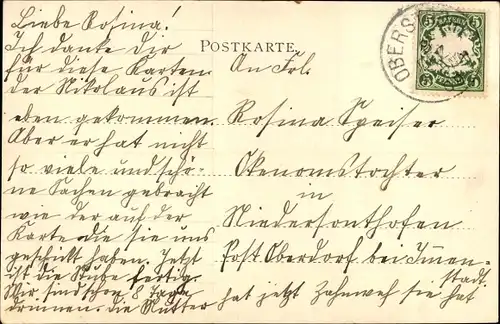 Liebe Rosina!
Ich danke dir
für diese Karten
der Nikolaus ist
eben gekommen.
Aber er hat nicht
so viele und schö-
ne Sachen gebracht
wie der auf der
Karte die sie uns
geschikt haben. Jetzt
ist die Stube fertig.
Wir sind schon 8 Tage
drinnen. die Mutter hat jetzt Zahnweh sie hat
POSTKARTE.
An Frl.
Rosina Speiser
Ökonomstochter
in
Niedersonthofen
Post Oberdorf bei Immen-
stadt.
OBERS
BAYERN
5 5
5 5